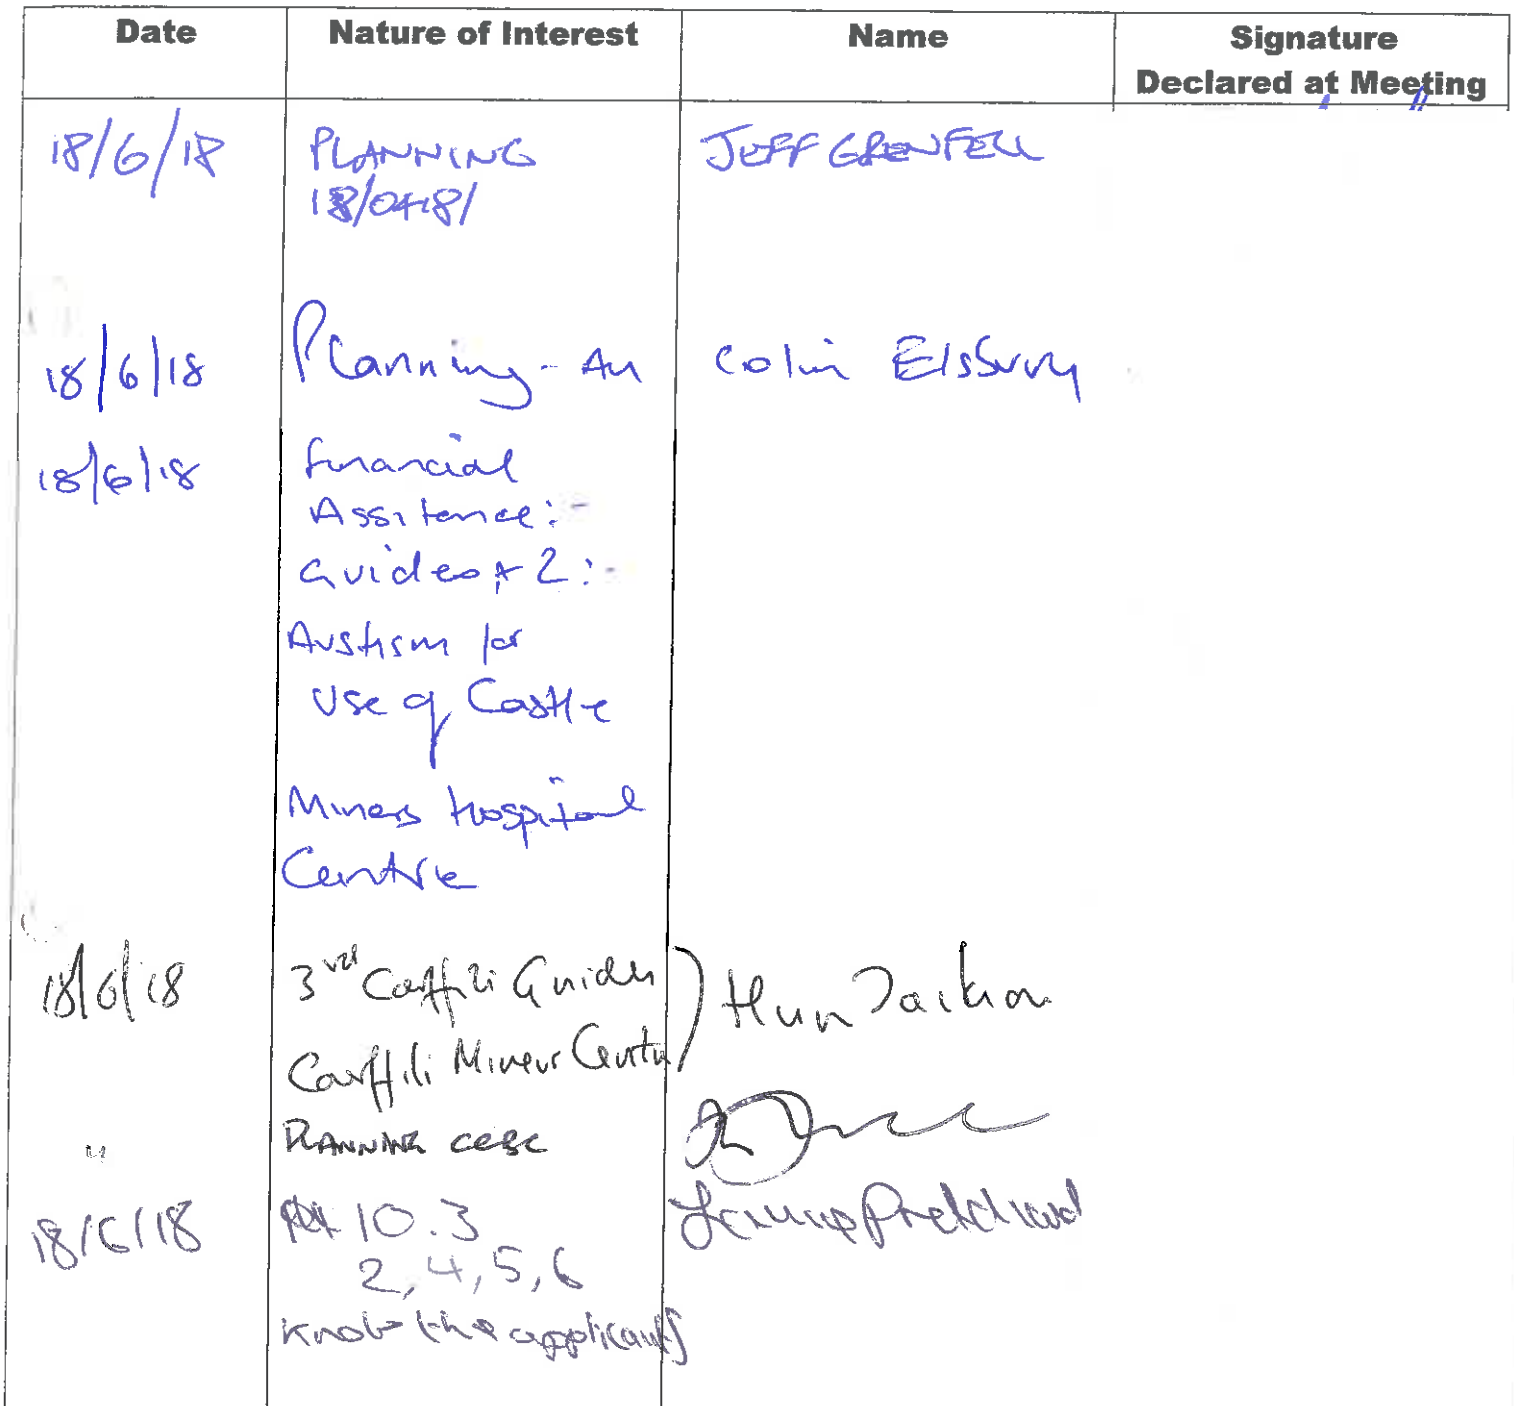 Date Nature of Interest Name Signature
Declared at Meeting
18/6/18 PLANNING JEFF GRENFELL
18/0418/
18/6/18 Planning - All Colin Elsbury
18/6/18 financial
Assitence:-
Guides x 2:-
Austism for
Use of Castle
Miners Hospital
Centre
18/6/18 3rd Caerffili Guides
Caerffili Miners Centre
" PLANNING CCBC
18/6/18 10.3
2, 4, 5, 6
Know the applicants